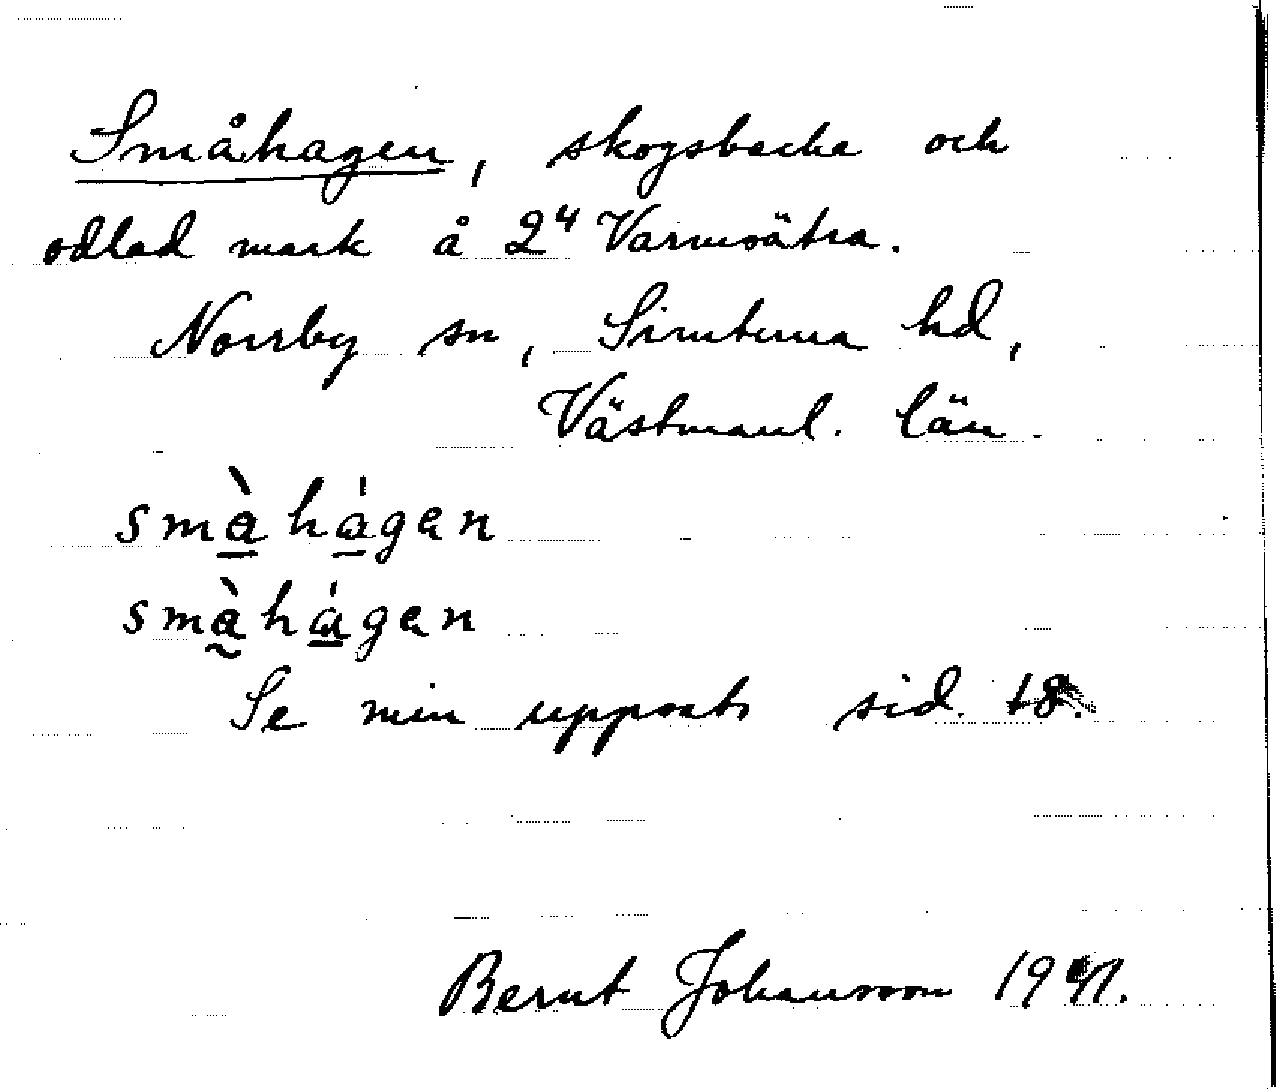 Småhagen, skogsbacke och
odlad mark å 2⁴ Varmsätra.
Norrby sn, Simtuna hd,
Västmanl. län.
småhágen
småhágen
Se min uppsats sid. 18.
Bernt Johansson 1941.